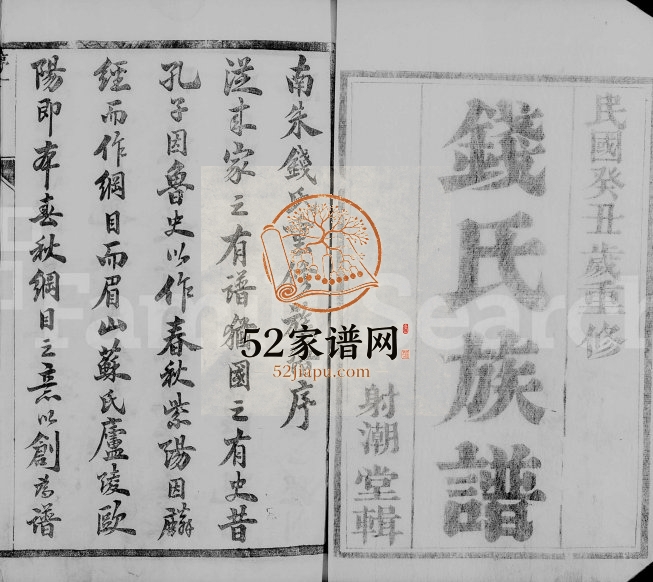 民國癸丑歲重修
錢氏族譜
射潮堂輯
南朱錢氏重修族譜序
從來家之有譜猶國之有史昔
孔子因魯史以作春秋紫陽因麟
經而作綱目而眉山蘇氏廬陵歐
陽即本春秋綱目之意以創為譜
52家谱网
52jiapu.com
FamilySearch